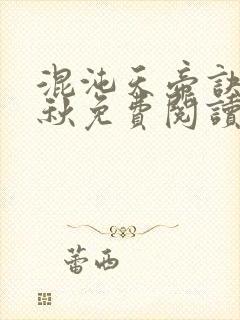 混沌天帝訣
秋免費閱讀
蕾西